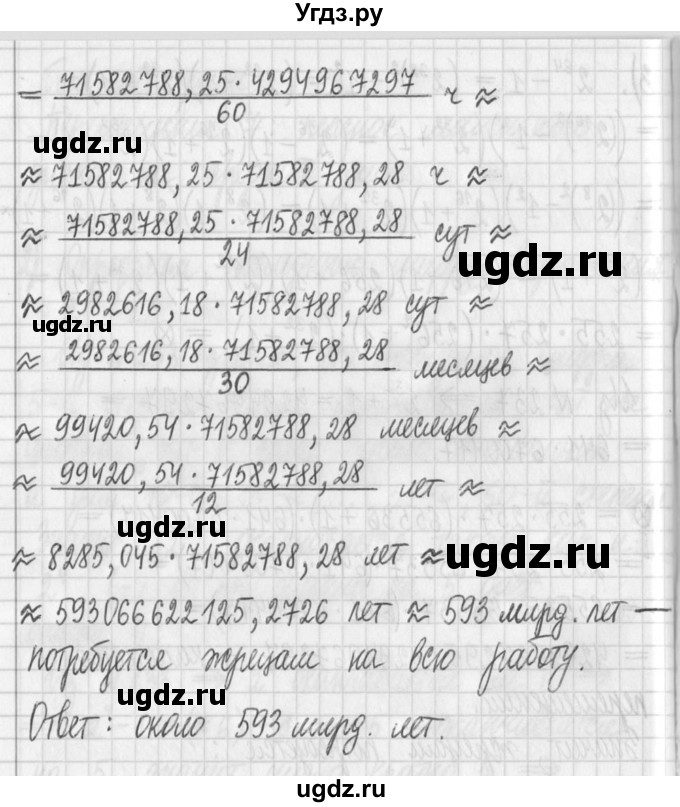 Угдз.ру
= 71582788,25·4294967297 / 60 ч ≈
ugdz.ru
≈ 71582788,25·71582788,28 ч ≈
≈ 71582788,25·71582788,28 / 24 сут ≈
ugdz.ru
≈ 2982616,18·71582788,28 сут ≈
ugdz.ru
≈ 2982616,18·71582788,28 / 30 месяцев ≈
≈ 99420,54·71582788,28 месяцев ≈
≈ 99420,54·71582788,28 / 12 лет ≈
ugdz.ru
≈ 8285,045·71582788,28 лет ≈
ugdz.ru
≈ 593066622125,2726 лет ≈ 593 млрд. лет —
потребуется жрецам на всю работу.
ugdz.ru
Ответ: около 593 млрд. лет.
ugdz.ru